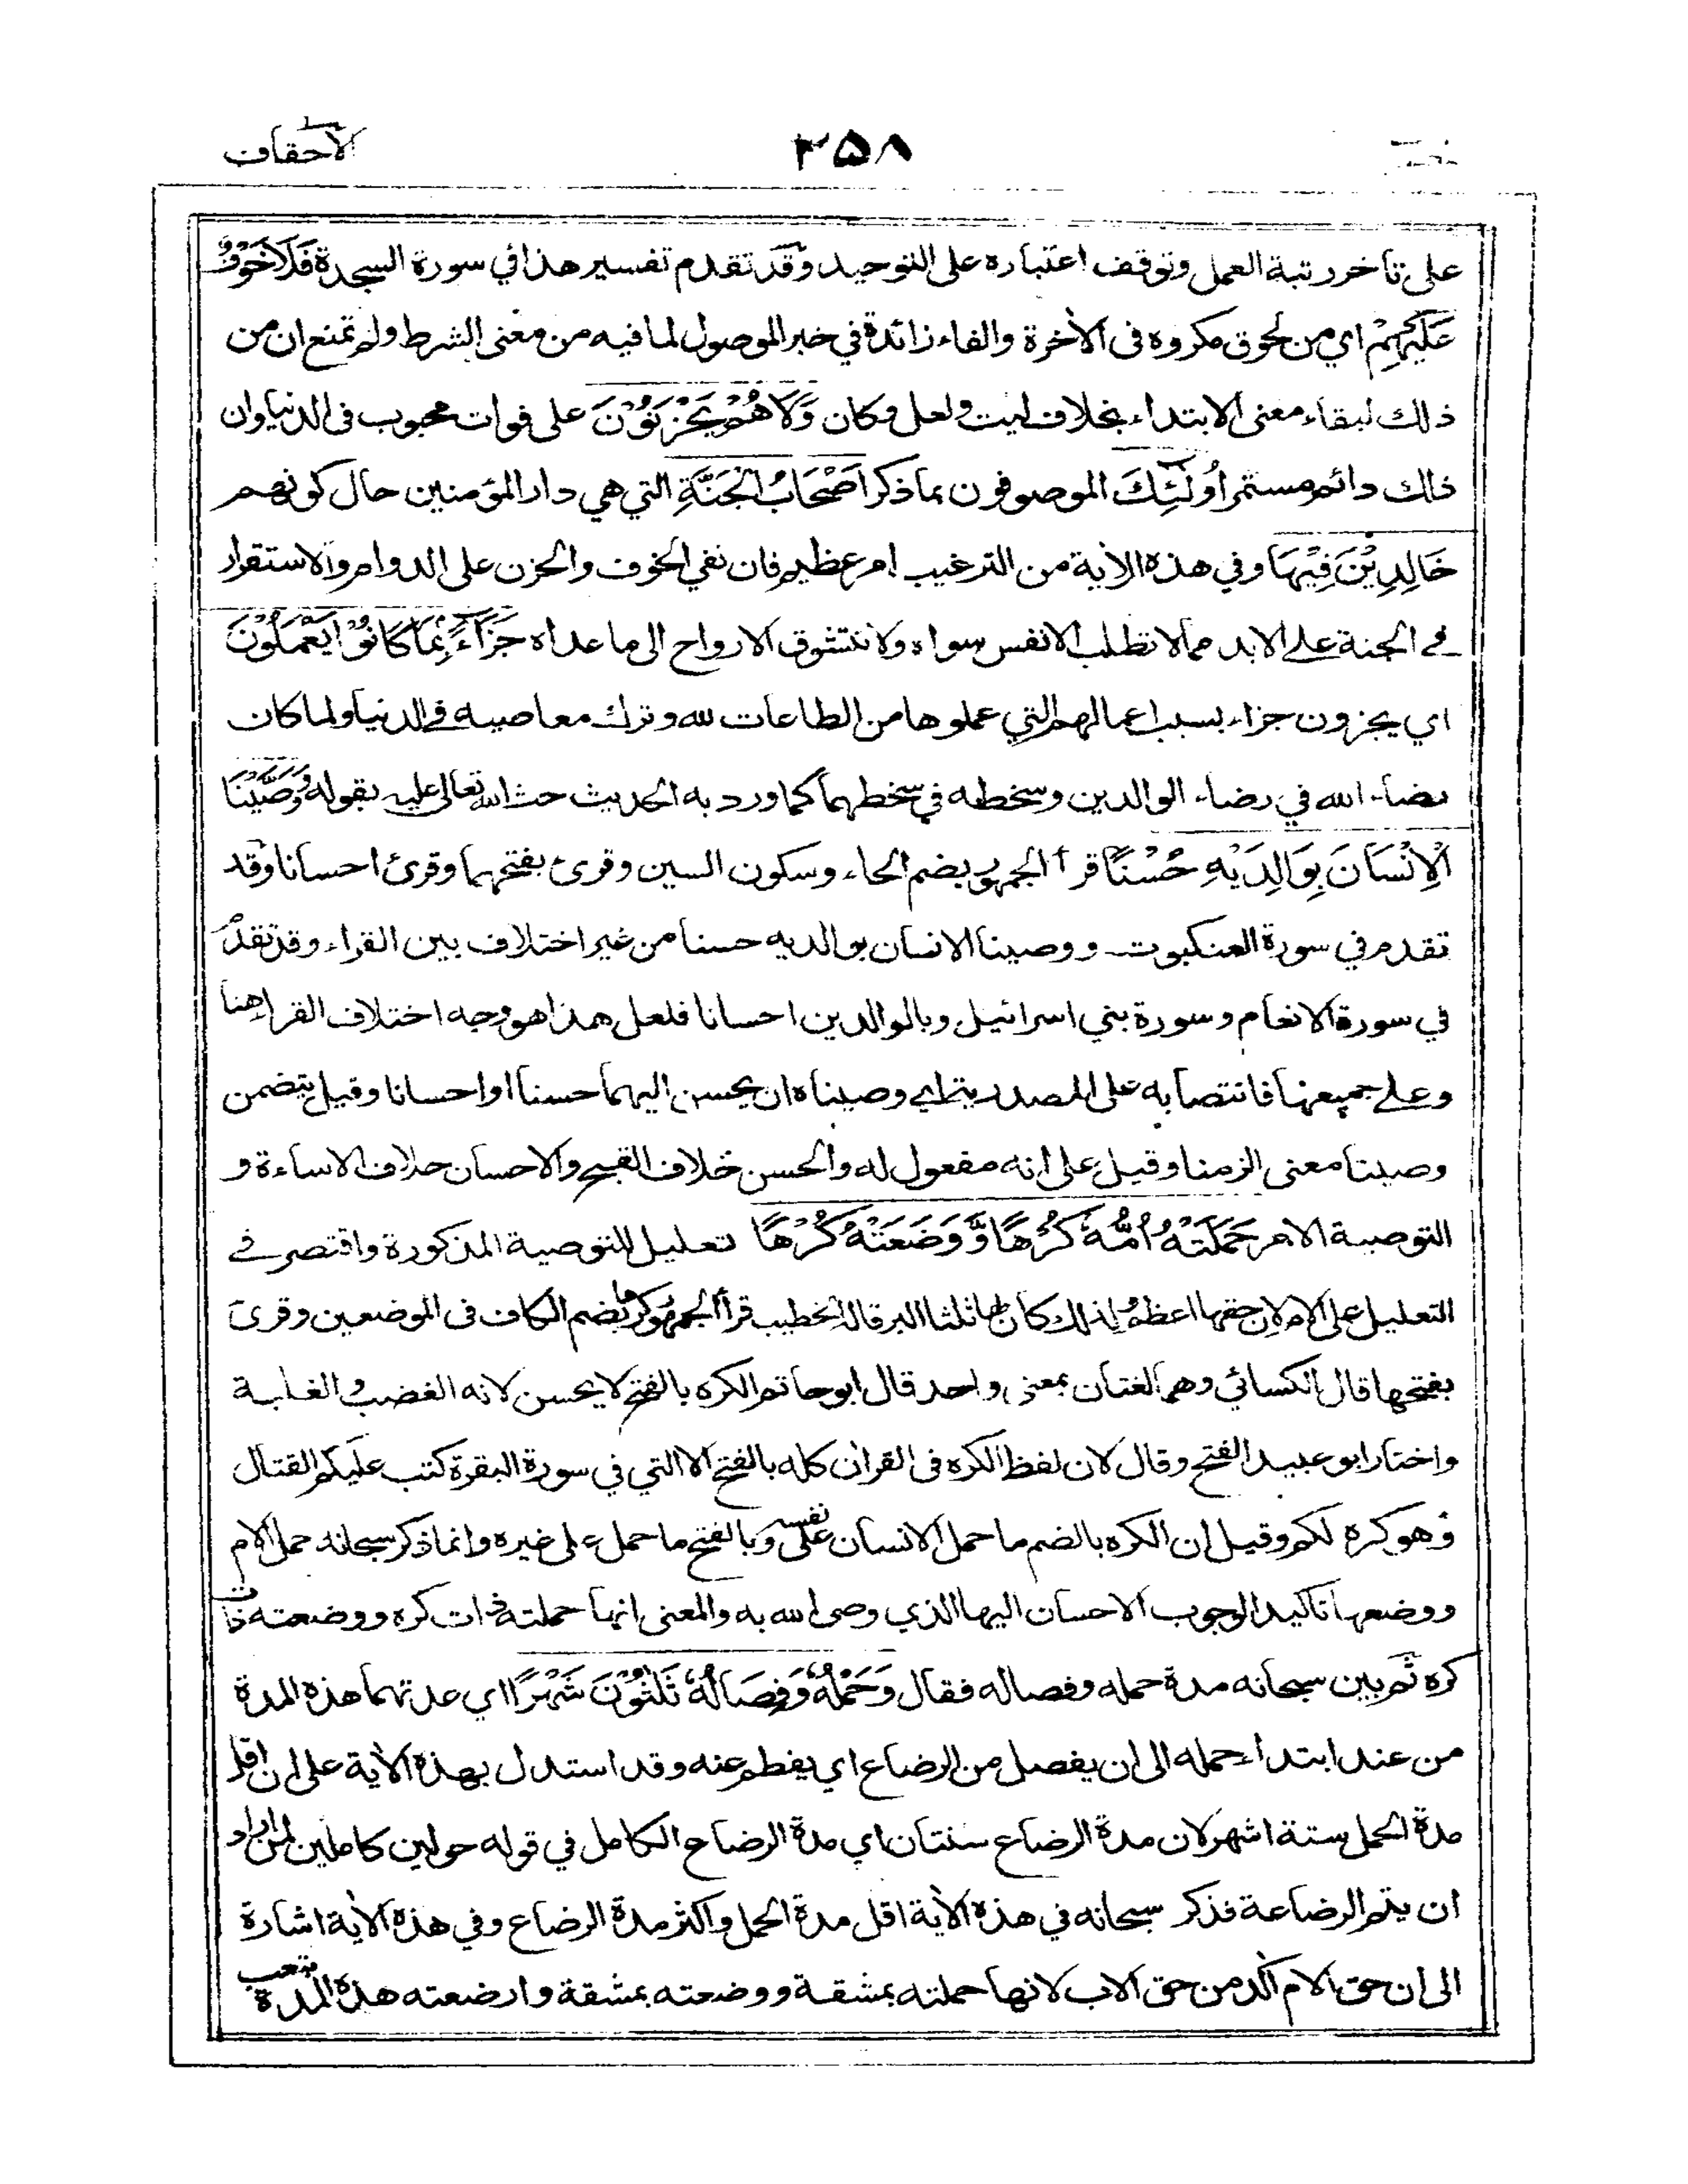 الأحقاف
٣٥٨
على تأخر رتبة العمل وتوقف اعتباره على التوحيد وقد تقدم تفسير هذا في سورة السجدة فَلَا خَوْفٌ
عَلَيْهِمْ اي من لحوق مكروه فى الأخرة والفاء زائدة في خبر الموصول لما فيه من معنى الشرط ولم تمنع ان من
ذلك لبقاء معنى الابتداء بخلاف ليت ولعل وكان وَلَا هُمْ يَحْزَنُوْنَ على فوات محبوب فى الدنيا وان
ذلك دائم مستمر اُولٰٓئِكَ الموصوفون بما ذكر اَصْحَابُ الْجَنَّةِ التي هي دار المؤمنين حال كونهم
خَالِدِيْنَ فِيْهَا وفي هذه الأية من الترغيب امر عظيم فان نفي الخوف والحزن على الدوام والاستقرار
في الجنة على الابد مما لا تطلب الانفس سواه ولا تتشوق الارواح الى ما عداه جَزَآءًۢ بِمَا كَانُوْا يَعْمَلُوْنَ
اي يجزون جزاء بسبب اعمالهم التي عملوها من الطاعات لله وترك معاصيه في الدنيا ولما كان
رضاء الله في رضاء الوالدين وسخطه في سخطهما كما ورد به الحديث حث الله تعالى عليه بقوله وَوَصَّيْنَا
الْاِنْسَانَ بِوَالِدَيْهِ حُسْنًا قرأ الجمهور بضم الحاء وسكون السين وقرئ بفتحهما وقرئ احسانا وقد
تقدم في سورة العنكبوت ووصينا الانسان بوالديه حسنا من غير اختلاف بين القراء وقد تقدم
في سورة الانعام وسورة بني اسرائيل وبالوالدين احسانا فلعل هذا هو وجه اختلاف القراء هنا
وعلى جميعها فانتصابه على المصدرية اي وصيناه ان يحسن اليهما حسنا او احسانا وقيل بتضمن
وصينا معنى الزمنا وقيل على انه مفعول له والحسن خلاف القبح والاحسان خلاف الاساءة و
التوصية الامر حَمَلَتْهُ اُمُّهٗ كُرْهًا وَّوَضَعَتْهُ كُرْهًا تعليل للتوصية المذكورة واقتصر في
التعليل على الام لان حقها اعظم ولذلك كان لها ثلثا البر قاله الخطيب قرأ الجمهور كرها بضم الكاف فى الموضعين وقرئ
بفتحها قال الكسائي وهما لغتان بمعنى واحد قال ابو حاتم الكره بالفتح لا يحسن لانه الغضب والغلبة
واختار ابو عبيد الفتح وقال لان لفظ الكره فى القرأن كله بالفتح الا التي في سورة البقرة كتب عليكم القتال
وهو كره لكم وقيل ان الكره بالضم ما حمل الانسان على نفسه وبالفتح ما حمل على غيره وانما ذكر سبحانه حمل الام
ووضعها تاكيدا لوجوب الاحسان اليها الذي وصى الله به والمعنى انها حملته ذات كره ووضعته ذات
كره ثم بين سبحانه مدة حمله وفصاله فقال وَحَمْلُهٗ وَفِصَالُهٗ ثَلٰثُوْنَ شَهْرًا اي عدتهما هذه المدة
من عند ابتداء حمله الى ان يفصل من الرضاع اي يفطم عنه وقد استدل بهذه الأية على ان اقل
مدة الحمل ستة اشهر لان مدة الرضاع سنتان اي مدة الرضاع الكامل في قوله حولين كاملين لمن اراد
ان يتم الرضاعة فذكر سبحانه في هذه الأية اقل مدة الحمل واكثر مدة الرضاع وفي هذه الأية اشارة
الى ان حق الام اكد من حق الاب لانها حملته بمشقة ووضعته بمشقة وارضعته هذه المدة بتعب